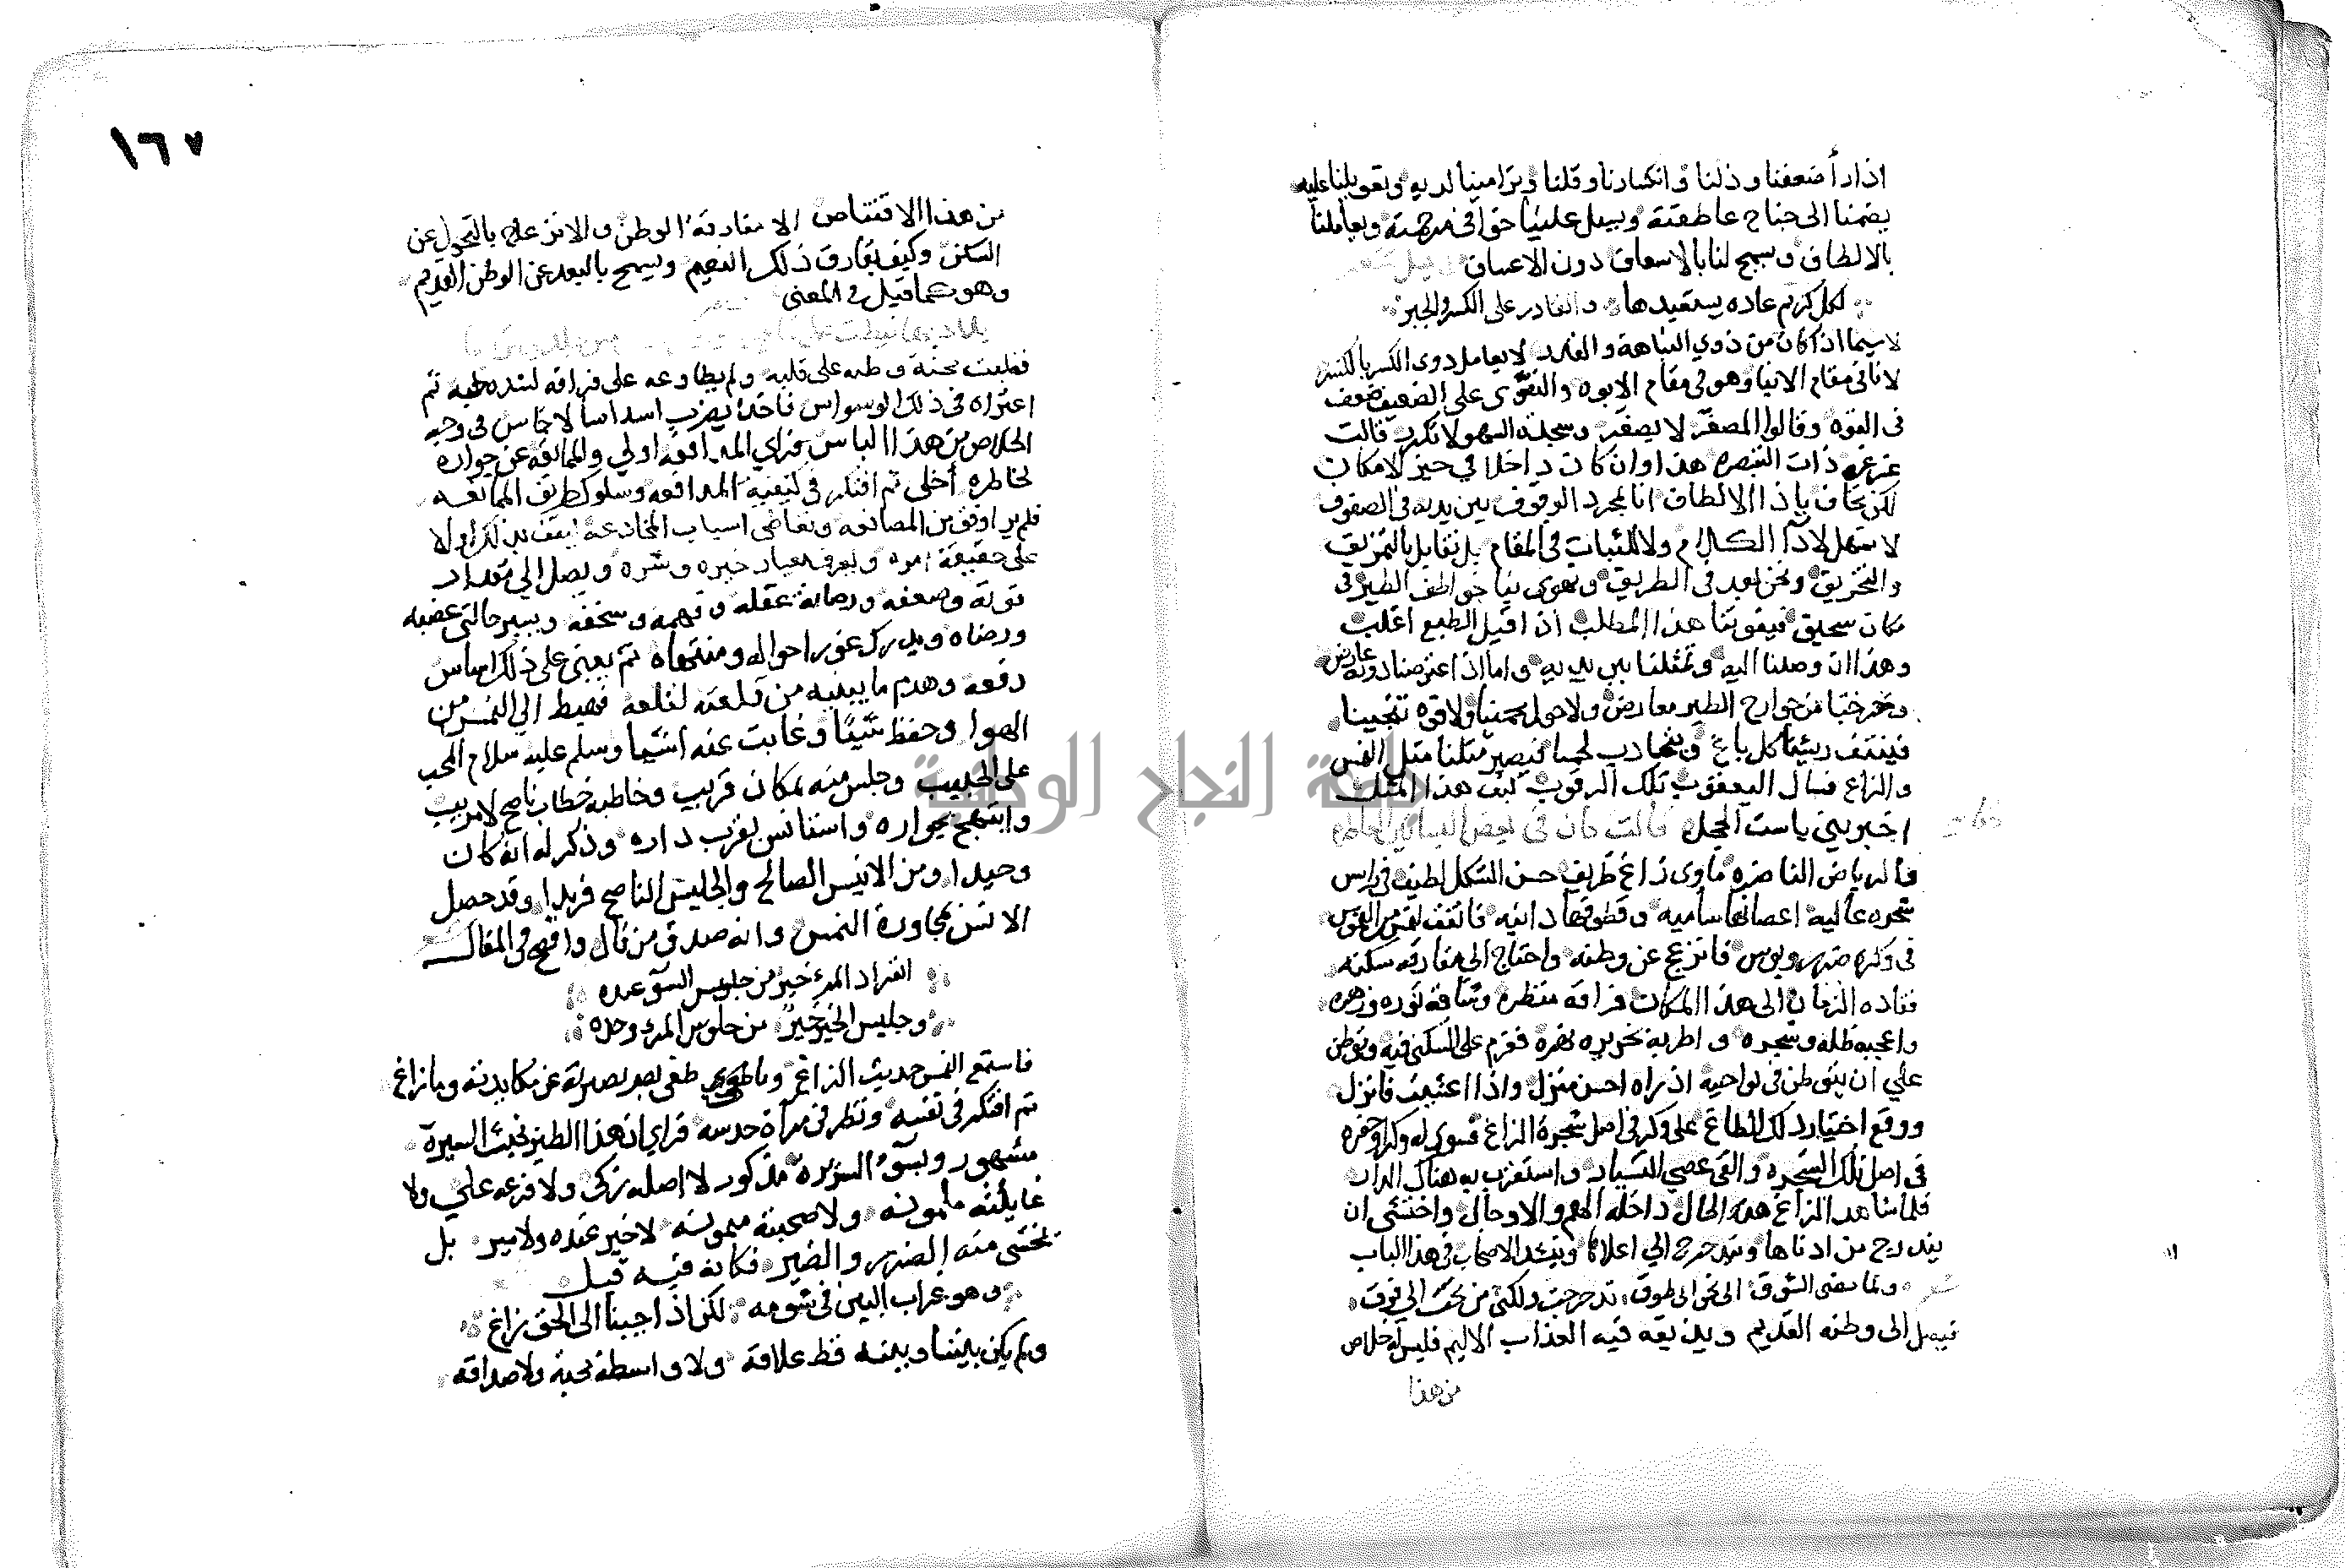 اذا رأ ضعفنا وذلنا وانكسارنا وقلنا وترامينا لديه وتعويلنا عليه
يضمنا الى جناح عاطفته ويسبل علينا خوافى مرحمته ويعاملنا
بالالطاف ويسمح لنا بالاسعاف دون الاعساف
لكل كريم عاده يستعيدها والقادر على الكسر والجبر
لا سيما اذ كان من ذوي النباهة والقدر لا يعامل ذوى الكسر بالكسر
لانا فى مقام الابنا وهو فى مقام الابوه والتقوى على الضعيف ضعف
فى القوه وقالوا المصغر لا يصغر وسجدة السهو لا تكرر قالت
غرغره ذات التبصره هذا وان كان داخلا في حيز الامكان
لكن نخاف ياذا الالطاف انا بمجرد الوقوف بين يديه فى الصفوف
لا نتمهل لادآ الكلام ولا للثبات فى المقام بل نقابل بالتمزيق
والتخريق ونحن بعد فى الطريق وتهوى بنا خواطف الطير فى
مكان سحيق فيفوتنا هذا المطلب اذ قيل الطبع اغلب
وهذا ان وصلنا اليه وتمثلنا بين يديه واما اذا اعترضنا دونه عارض
وخرجنا من جوارح الطير معارض ولا حول يحمينا ولا قوه تنجينا
فينتف ريشنا كل باغ ويتجاذب لحمنا فيصير مثلنا مثل النمس
والزاغ فسال اليعقوب تلك الرقوب كيف هذا المثل
اخبرينى ياست الحجل قالت كان فى بعض البساتين العاطره
والرياض الناضره ماوى زاغ ظريف حسن الشكل لطيف فى راس
شجره عاليه اغصانها ساميه وقطوفها دانيه فاتفق لنمس من النموس
فى وكره ضرر وبوس فانزعج عن وطنه واحتاج الى مفارقه سكنه
فقاده الزمان الى هذا المكان فراقه منظره وشاقه نوره وزهره
واعجبه ظله وشجره واطربه بخريره نهره فعزم على السكنى فيه وتوطن
علي ان يتوطن فى نواحيه اذ راه احسن منزل واذا اعشبت فانزل
ووقع اختيار ذلك الطاغ على وكر فى اصل شجرة الزاغ فسوى له وكرا وحفره
فى اصل تلك الشجره والقى عصي التسيار واستقر به هناك الدار
فلما شاهد الزاغ هذه الحال داخله الهم والاوجال واخشى ان
يتدرج من ادناها ويتدحرج الي اعلاها وينشد الاصحاب فى هذا الباب
ولما مضى الشوق الى نحو ابى طوق تدحرجت ولكنى من تحت الى فوق
فيصل الى وطنه القديم ويذيقه فيه العذاب الاليم فليس له خلاص
من هذا
١٦٧
من هذا الاقتناص الا مفارقة الوطن والانزعاج بالتحول عن
السكن وكيف يفارق ذلك النعيم ويسمح بالبعد عن الوطن القديم
وهو كما قيل فى المعنى
فغلبت محبة وطنه على قلبه ولم يطاوعه على فراقه لشدة حبه ثم
اعتراه فى ذلك الوسواس فاخذ يضرب اسداسا لاخماس فى وجه
الخلاص من هذا الباس فراي المدافعه اولي والممانعه عن جواره
لخاطره أخلى ثم افتكر فى كيفية المدافعه وسلوك طريق الممانعه
فلم ير اوفق من المصانعه وتعاطى اسباب المخادعة ليقف بذلك اولا
على حقيقة امره ويعرف معيار خيره وشره ويصل الي مقدار
قوته وضعفه ورصانة عقله وفهمه وسخفه ويسير حالتى غضبه
ورضاه ويدرك غور احواله ومنتهاه ثم يبنى على ذلك اساس
دفعه وهدم ما يبنيه من قلعته لقلعه فهبط الي النمس من
الهوا وحفظ شيئا وغابت عنه اشيا وسلم عليه سلام المحب
على الحبيب وجلس منه بمكان قريب وخاطبه خطاب ناصح لا مريب
وابتهج بجواره واستانس بقرب داره وذكر له انه كان
وحيدا ومن الانيس الصالح والجليس الناصح فريدا وقد حصل
الانس بمجاورة النمس وانه صدق من قال وافصح فى المقال
انفراد المرء خير من جليس السوء عنده
وجليس الخير خير من جلوس المرء وحده
فاستمع النمس حديث الزاغ وما طغى بصر بصيرته عن مكايدته وما زاغ
ثم افتكر فى نفسه ونظر فى مرآة حدسه فراي ان هذا الطير بخبث السيرة
مشهور وبسوء السريره مذكور لا اصله زكى ولا فرعه علي ولا
غايلته مأمونه ولا صحبته ميمونه لا خير عنده ولا مير بل
يخشى منه الضرر والضير فكانه فيه قيل
وهو غراب البين فى شومه لكن اذا جينا الى الحق زاغ
ولم يكن بيننا وبينه قط علاقة ولا واسطة محبة ولا صداقه